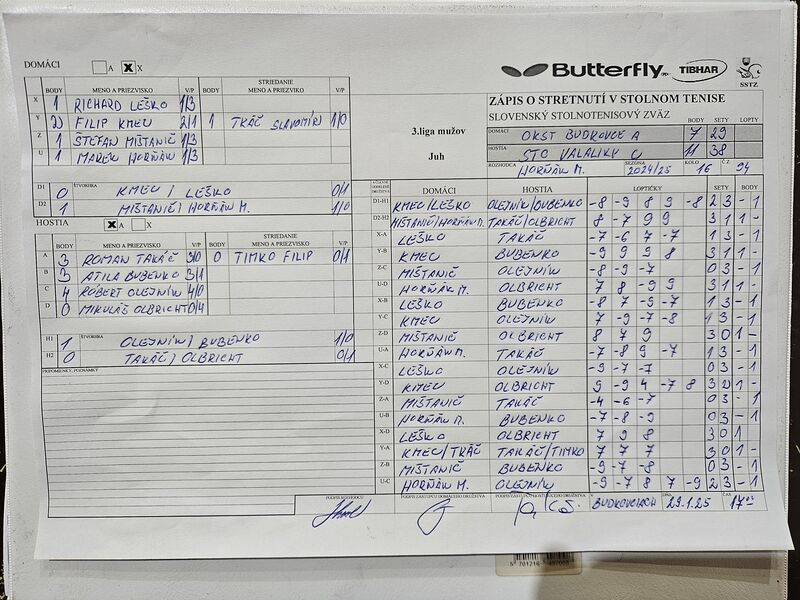 DOMÁCI A X
Butterfly TIBHAR SSTZ
BODY MENO A PRIEZVISKO V/P BODY STRIEDANIE MENO A PRIEZVISKO V/P
X 1 RICHARD LEŠKO 1/3
Y 2 FILIP KMEC 2/1 1 TKÁČ SLAVOMÍR 1/0
Z 1 ŠTEFAN MIŠTANIČ 1/3
U 1 MAREK HORŇÁK 1/3
3.liga mužov
Juh
ZÁPIS O STRETNUTÍ V STOLNOM TENISE
SLOVENSKÝ STOLNOTENISOVÝ ZVÄZ BODY SETY LOPTY
DOMÁCI OKST BUDKOVCE A 7 29
HOSTIA STO VALALIKY C 11 38
ROZHODCA HORŇÁK M. SEZÓNA 2024/25 KOLO 16 Č.Z. 94
D1 0 ŠTVORHRA KMEC / LEŠKO 0/1
D2 1 MIŠTANIČ / HORŇÁK M. 1/0
HOSTIA A X
BODY MENO A PRIEZVISKO V/P BODY STRIEDANIE MENO A PRIEZVISKO V/P
A 3 ROMAN TAKÁČ 3/0 0 TIMKO FILIP 0/1
B 3 ATILA BUBENKO 3/1
C 4 RÓBERT OLEJNÍK 4/0
D 0 MIKULÁŠ OLBRICHT 0/4
H1 1 ŠTVORHRA OLEJNÍK / BUBENKO 1/0
H2 0 TAKÁČ / OLBRICHT 0/1
PRIPOMIENKY, POZNÁMKY
DOMÁCI HOSTIA LOPTIČKY SETY BODY
D1-H1 KMEC/LEŠKO OLEJNÍK/BUBENKO -8 -9 8 9 -8 2 3 - 1
D2-H2 MIŠTANIČ/HORŇÁK M. TAKÁČ/OLBRICHT 8 -7 9 9 3 1 1 -
X-A LEŠKO TAKÁČ -7 -6 7 -7 1 3 - 1
Y-B KMEC BUBENKO -9 9 9 8 3 1 1 -
Z-C MIŠTANIČ OLEJNÍK -8 -9 -7 0 3 - 1
U-D HORŇÁK M. OLBRICHT 7 8 -9 9 3 1 1 -
X-B LEŠKO BUBENKO -8 7 -9 -7 1 3 - 1
Y-C KMEC OLEJNÍK 7 -9 -7 -8 1 3 - 1
Z-D MIŠTANIČ OLBRICHT 8 7 9 3 0 1 -
U-A HORŇÁK M. TAKÁČ -7 -8 9 -7 1 3 - 1
X-C LEŠKO OLEJNÍK -9 -7 -7 0 3 - 1
Y-D KMEC OLBRICHT 9 -9 4 -7 8 3 2 1 -
Z-A MIŠTANIČ TAKÁČ -4 -6 -7 0 3 - 1
U-B HORŇÁK M. BUBENKO -7 -8 -9 0 3 - 1
X-D LEŠKO OLBRICHT 7 9 8 3 0 1
Y-A KMEC/TKÁČ TAKÁČ/TIMKO 7 7 7 3 0 1 -
Z-B MIŠTANIČ BUBENKO -9 -7 -8 0 3 - 1
U-C HORŇÁK M. OLEJNÍK -9 -7 8 7 -9 2 3 - 1
PODPIS ROZHODCU PODPIS ZÁSTUPCU DOMÁCEHO DRUŽSTVA PODPIS ZÁSTUPCU HOSŤUJÚCEHO DRUŽSTVA V BUDKOVCIACH DŇA 29.1.25 ČAS 17
5 701216 497005